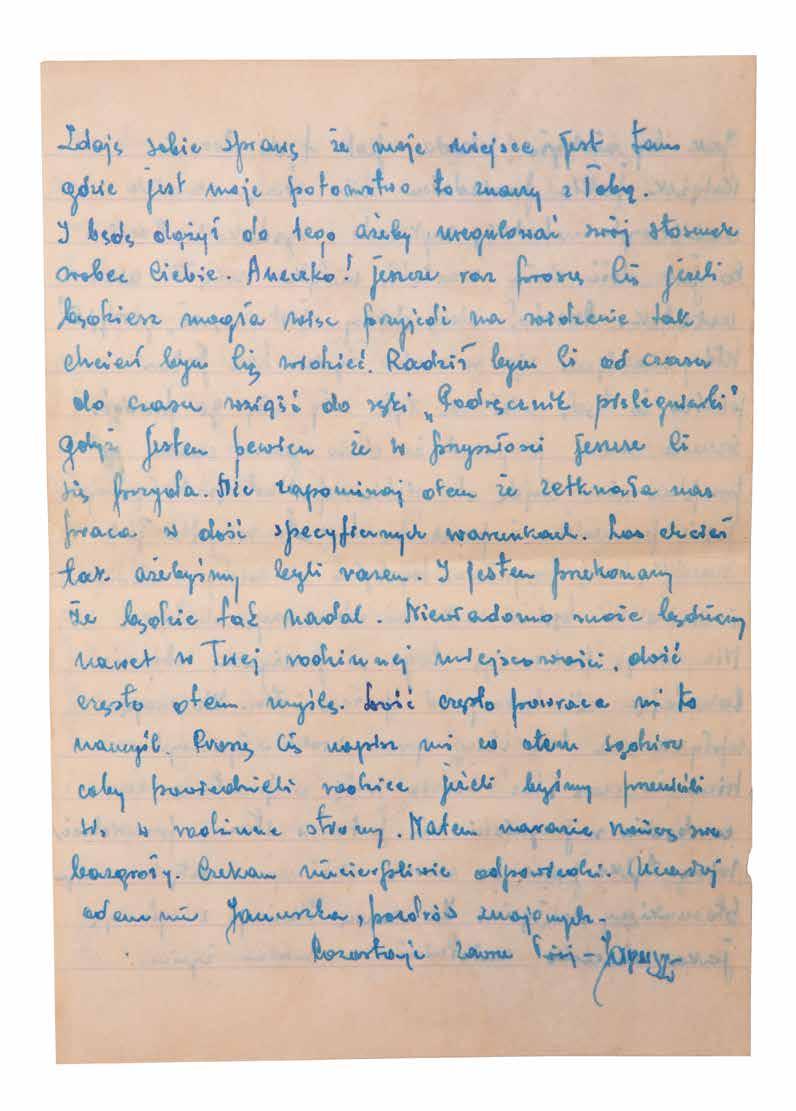 Zdaję sobie sprawę że moje miejsce jest tam
gdzie jest moje potomstwo to znamy z Tobą.
I będę dążył do tego ażeby uregulować swój stosunek
wobec Ciebie. Aneczko! jeszcze raz proszę Cię jeżeli
będziesz mogła więc przyjedź na widzenie tak
chciał bym Cię widzieć. Radził bym Ci od czasu
do czasu wziąść do ręki „Podręcznik pielęgniarki"
gdyż jestem pewien że w przyszłości jeszcze Ci
się przyda. Nie zapominaj otem że zetknęła nas
praca w dość specyficznych warunkach. Los chciał
tak ażebyśmy byli razem. I jestem przekonany
że będzie tak nadal. Niewiadomo może będziemy
nawet w Twej rodzinnej miejscowości, dość
często otem myślę. Dość często powraca mi to
namyśl. Proszę Cię napisz mi co otem sądzisz
coby powiedzieli rodzice jeżeli byśmy przenieśli
się w rodzinne strony. Natem narazie kończę swe
bazgroły. Czekam niecierpliwie odpowiedzi. Ucałuj
odemnie Januszka, pozdrów znajomych.
Pozostaje zawsze Twój –